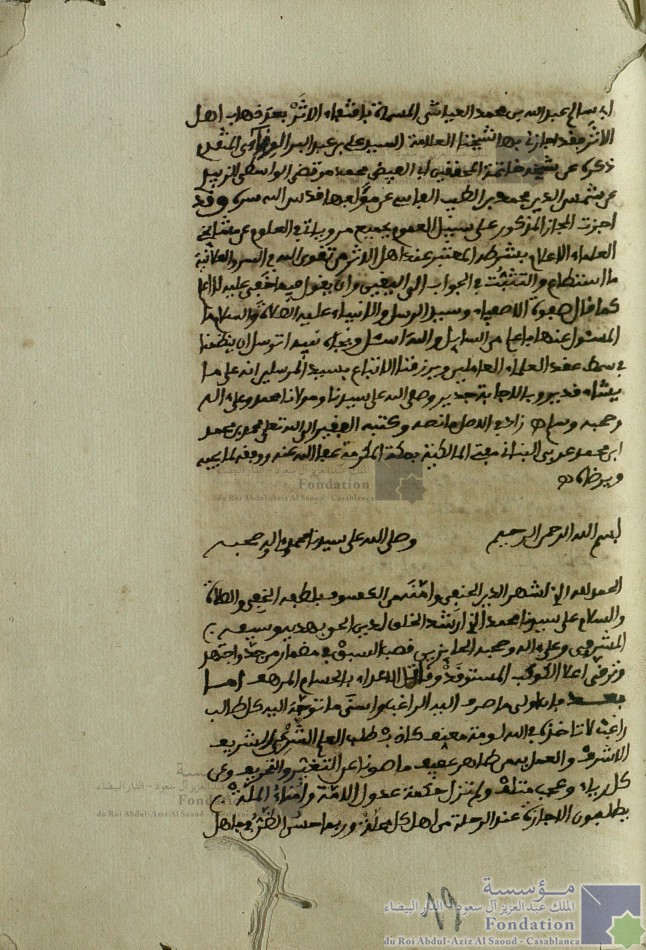 ابى سالم عبد الله بن محمد العياشى المسماة باقتفاء الاثر بعد ذهاب اهل
الاثر فقد اجازنى بها شيخنا العلامة السيد على بن عبد البر الونائى المتقدم
ذكره عن شيخه خاتمة المحققين ابى الفيض محمد مرتضى الواسطى الزبيدى
عن شمس الدين محمد بن الطيب الفاسى عن مؤلفها قدس الله سره وقد
اجزت المجاز المذكور على سبيل العموم بجميع مروياتى فى العلوم عن مشايخى
العلماء الاعلام بشرطه المعتبر عند اهل الاثر من تقوى الله فى السر والعلانية
ما استطاع والتثبت فى الجواب الى اليقين وان يقول فيما خفى عليه لا اعلم
كما قال صفوة الاصفياء وسيد الرسل والانبياء عليه الصلاة والسلام ما
المسئول عنها باعلم من السايل والله اسئل وبجاه نبيه اتوسل ان ينظمنا
فى سمط عقد العلماء العاملين ويرزقنا الاتباع بسيد المرسلين انه على ما
يشاء قدير وبالاجابة جدير وصلى الله على سيدنا ومولانا محمد وعلى اله
وصحبه وسلم زاد فى الاصل ما نصه وكتبه الفقير الى الله تعلى محمد بن محمد
ابن محمد عربى البنانى مفتى المالكية بمكة المكرمة عفا الله عنه ووفقه لما يحبه
ويرضاه
بسم الله الرحمن الرحيم وصلى الله على سيدنا محمد واله وصحبه
الحمد لله الذى اشهر الدين الحنفى وامنه من الكسوف بلطفه الخفى والصلاة
والسلام على سيدنا محمد الذى ارشد الخلق لدين الحق بهديه وسيفه
المشرفى وعلى اله وصحبه الحايزين قصب السبق فى مضمار من جد واجتهد
وترقى اعلا الكوكب المستوقد الاعداء بالحسام المرهف اما
بعد فان اولى ما صرف اليه الراغب واسنى ما توجه اليه كل طالب
راغب لا تاخذه فى الله لومة معنف طلب العلم الشرعى الشريف
الاشرف والعمل به من طاهر عفيف مصونا عن التغيير والتحريف وعن
كل رياء وعجب متلف ولم تزل حكمة عدول الامة وامناء الملة
يطلبون الاجازة عند الرحلة من اهل كل محلة وربما حسن الظن بى اهل
مؤسسة
الملك عبد العزيز آل سعود - الدار البيضاء
Fondation
du Roi Abdul-Aziz Al Saoud - Casablanca